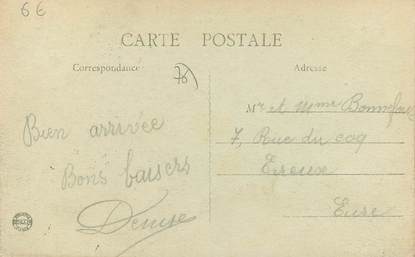 6€
CARTE POSTALE
Correspondance
76
Adresse
Mr et mme Bonnefoy
7, Rue du coq
Evreux
Eure
Bien arrivée
Bons baisers
Denise